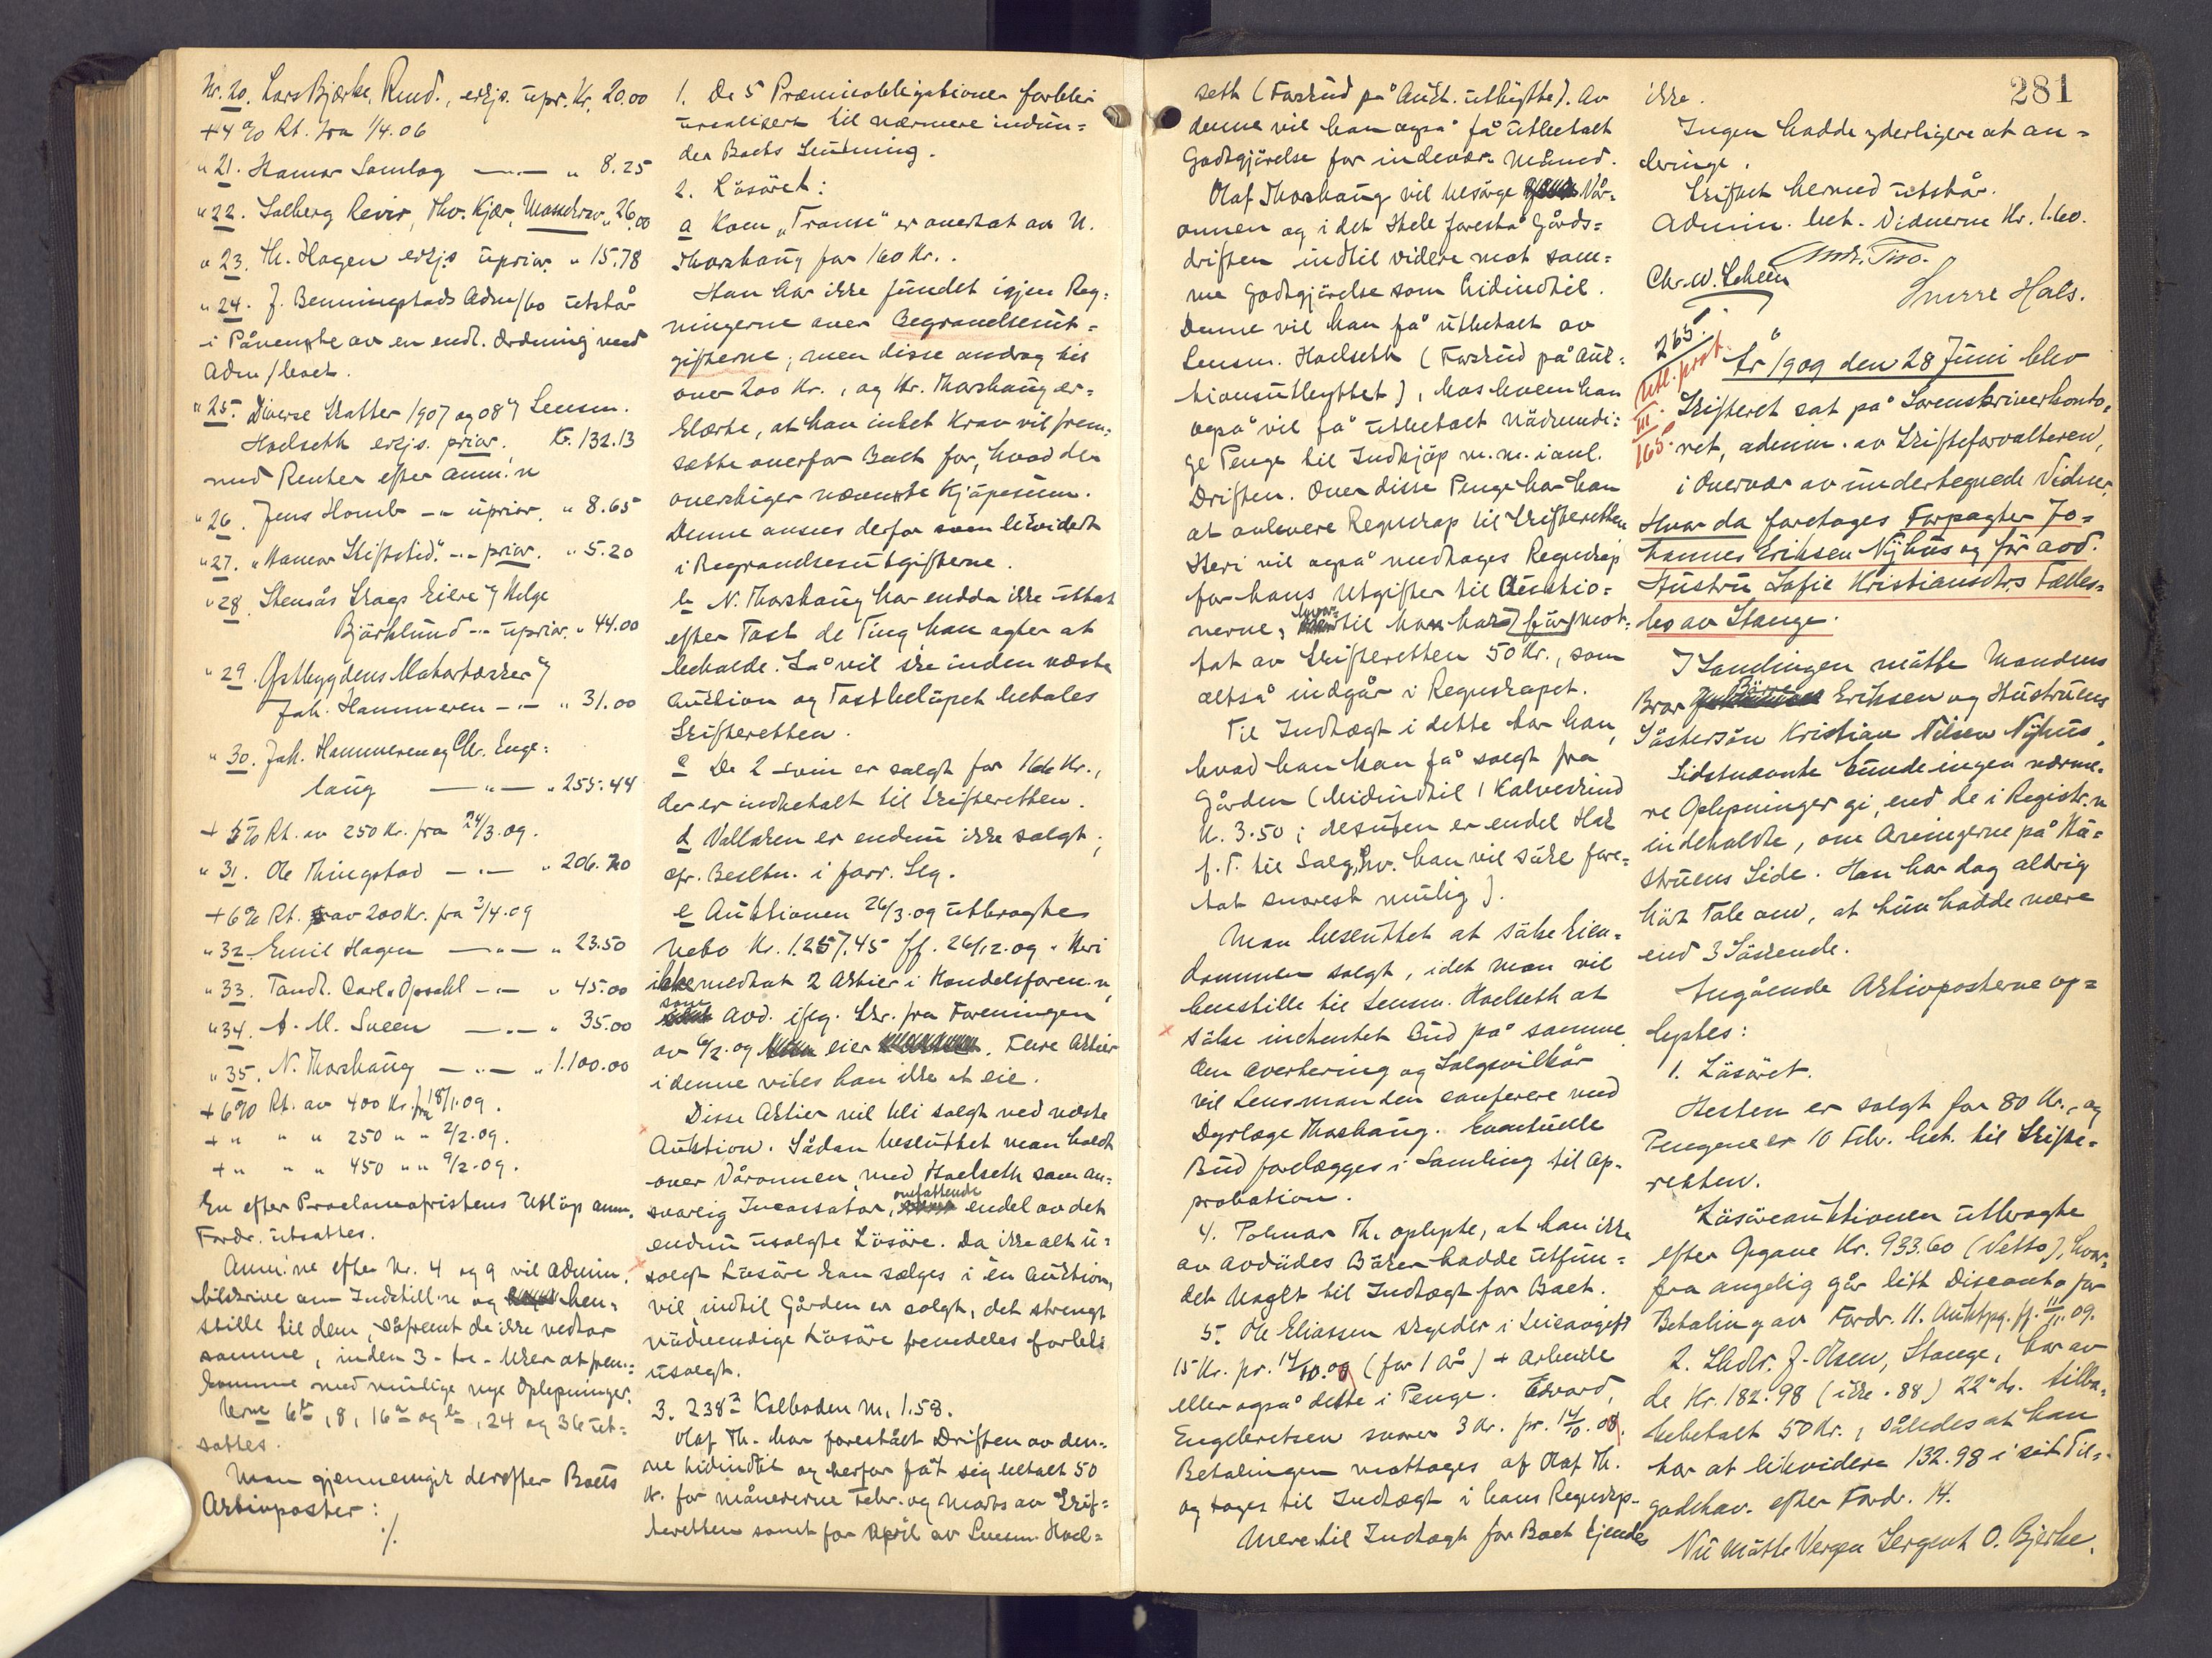 Nr. 20. Lars Bjerke, Rmd., erkjs. upr. Kr. 20.00
+ 4 % Rt. fra 1/4.06
" 21. Hamar Samlag — " — " 8.25
" 22. Solberg Revir, Thv. Kjær, " 26.00
" 23. Th. Hagen erkjs uprior. " 15.78
" 24. J. Benningstads Adm/bo utstår
i Påvente av en endl. Ordning med
Adm/boet.
" 25. Diverse Skatter 1907 og 08 v/ Lensm.
Hoelseth erkjs. prior. Kr. 132.13
med Renter efter anm.n
" 26. Jens Homb — " uprior. " 8.65
" 27. "Hamar Stiftstid." — " — prior. " 5.20
" 28. Stensås Skogs Eiere v/ Helge
Björklund — " uprior. " 44.00
" 29. Østbygdens Motortærsker v/
Joh. Hammeren — " — " 31.00
" 30. Joh. Hammeren og Chr. Enge-
laug — " — " 255.44
+ 5% Rt. av 250 Kr. fra 24/3.09.
" 31. Ole Thingstad — " — " 206.70
+ 6% Rt. av 200 Kr. fra 3/4.09
" 32. Emil Hagen — " — " 23.50
" 33. Tandl. Carl Opsahl — " — " 45.00
" 34. A. M. Sveen — " — " 35.00
" 35. N. Thorshaug — " — " 1.100.00
+ 6% Rt. av 400 Kr. fra 18/1.09.
+ " " " 250 " " 2/2.09.
+ " " " 450 " " 9/2.09.
En efter Proclamafristens Utløp anm.
Fordr. utsattes.
Anm.ne efter Nr. 4 og 9 vil admin.
tilskrive om Indstill.n og hen-
stille til dem, såfremt de ikke vedtar
samme, inden 3 - tre - Uker at frem-
komme med mulige nye Oplysninger.
Nrne 6 b, 8, 16 a og b, 24 og 36 ut-
sattes.
Man gjennemgik derefter Boets
Aktivposter:
./.
1. De 5 Præmieobligationer forblir
urealisert til nærmere indun-
der Boets Slutning.
2. Løsøret:
a Koen "Franse" er overtat av N.
Thorshaug for 160 Kr..
Han har ikke fundet igjen Reg-
ningerne over Begravelsesut-
gifterne; men disse androg til
over 200 Kr., og Hr. Thorshaug er-
klærte, at han intet Krav vil frem-
sætte overfor Boet for, hvad der
overstiger nævnte Kjøpesum.
Denne ansees derfor som likvidert
i Begravelsesutgifterne.
b N. Thorshaug har endda ikke uttat
efter Tast de Ting, han agter at
beholde. Så vil ske inden næste
Auktion og Tastbeløpet betales
Skifteretten.
c De 2 svin er solgt for 166 Kr.,
der er indbetalt til Skifteretten.
d Vallaken er endnu ikke solgt;
cfr. Besltn. i forr. Slg.
e Auktionen 26/3.09 utbragte
netto Kr. 1.257.45 ff. 26/12.09. Heri
ikke medtat 2 Aktier i Handelsforen.n,
som avd. iflg. Skr. fra Foreningen
av 6/2.09 eier. Flere Aktier
i denne vites han ikke at eie.
Disse Aktier vil bli solgt ved næste
Auktion. Sådan besluttet man holdt
over Våronnen, med Hoelseth som an-
svarlig Incassator, omfattende endel av det
endnu usolgte Løsøre. Da ikke alt u-
solgt Løsøre kan sælges i en Auktion,
vil, indtil Gården er solgt, det strengt
nødvendige Løsøre fremdeles forbli
usolgt.
3. 238 2 Kolboden M. 1.58.
Olaf Th. har forestått Driften av den-
ne hidindtil og herfor fåt sig betalt 50
Kr. for månederne Febr. og Marts av Skif-
teretten samt for April av Lensm. Hoel-
seth (Forskud på Aukt. utbyttte). Av
denne vil han også få utbetalt
Godtgjørelse for indevær. Måned.
Olaf Thorshaug vil besørge Vår-
onnen og i det Hele forestå Gårds-
driften indtil videre mot sam-
me Godtgjørelse som hidindtil.
Denne vil han få utbetalt av
Lensm. Hoelseth (Forskud på Auk-
tionsutbyttet), hos hvem han
også vil få utbetalt nødvendi-
ge Penge til Indkjøp m.m. i anl.
Driften. Over disse Penge har han
at avlevere Regnskap til Skifteretten
Heri vil også medtages Regnskap
for hans Utgifter til Auktio-
nerne, hvortil han har før mot-
tat av Skifteretten 50 Kr., som
altså indgår i Regnskapet.
Til Indtægt i dette har han,
hvad han kan få solgt fra
Gården (hidindtil 1 Kalveskind
Kr. 3.50; desuten er endel Hal
f.T. til Salg, hv. han vil søke fore-
tat snarest mulig).
Man besluttet at søke Eien-
dommen solgt, idet man vil
henstille til Lensm. Hoelseth at
søke indhentet Bud på samme.
Om Avertering og Salgsvilkår
vil Lensmanden conferere med
Dyrlæge Thorshaug. Eventuelle
Bud forelægges i Samling til Ap-
probation.
4. Polmar Th. oplyste, at han ikke
av avdødes Bøker hadde utfun-
det Noget til Indtægt for Boet.
5. Ole Eliassen skylder i Leieavgift
15 Kr. pr. 14/10.09 (for 1 År) + Arbeide
eller også dette i Penge. Edvard
Engebretsen svarer 3 Kr. pr. 14/10.08.
Betalingen mottages af Olaf Th.
og tages til Indtægt i hans Regnskap.
Mere til Indtægt for Boet kjendes
281
ikke.
Ingen hadde yderligere at an-
bringe.
Skiftet hermed utstår.
Admin. bet. Vidnerne Kr. 1.60.
Chr. W. Scheen
Snorre Hals.
265.
Utl. prot.
III.
165.
År 1909 den 28 Juni blev
Skifteret sat på Sorenskriverkonto-
ret, admin. av Skifteforvalteren,
i Overvær av undertegnede Vidner,
Hvor da foretoges Forpagter Jo-
hannes Eriksen Nyhus og før avd.
Hustru Sofie Kristiansdtrs Fælles-
bo av Stange.
I Samlingen møtte Mandens
Bror Eriksen og Hustruens
Søstersøn Kristian Nilsen Nyhus.
Sidstnævnte kunde ingen nærme-
re Oplysninger gi, end de i Registr.n
indeholdte, om Arvingerne på Hu-
struens Side. Han har dog aldrig
hørt Tale om, at hun hadde mere
end 3 Søskende.
Angående Aktivposterne op-
lystes:
1. Løsøret.
Hesten er solgt for 80 Kr., og
Pengene er 10 Febr. bet. til Skifte-
retten.
Løsøreauktionen utbragte
efter Opgave Kr. 933.60 (Netto), hvor-
fra angelig går litt Disconto for
Betaling av Fordr. 11. Auktpg. ff. 11/11.09.
2. Skodr. J. Olsen, Stange, har av
de Kr. 182.98 (ikke .88) 22 ds. tilba-
kebetalt 50 Kr., således at han
har at likvidere 132.98 i sit Til-
godehav. efter Fordr. 14.
Nu møtte Vergen Sergent O. Bjerke.